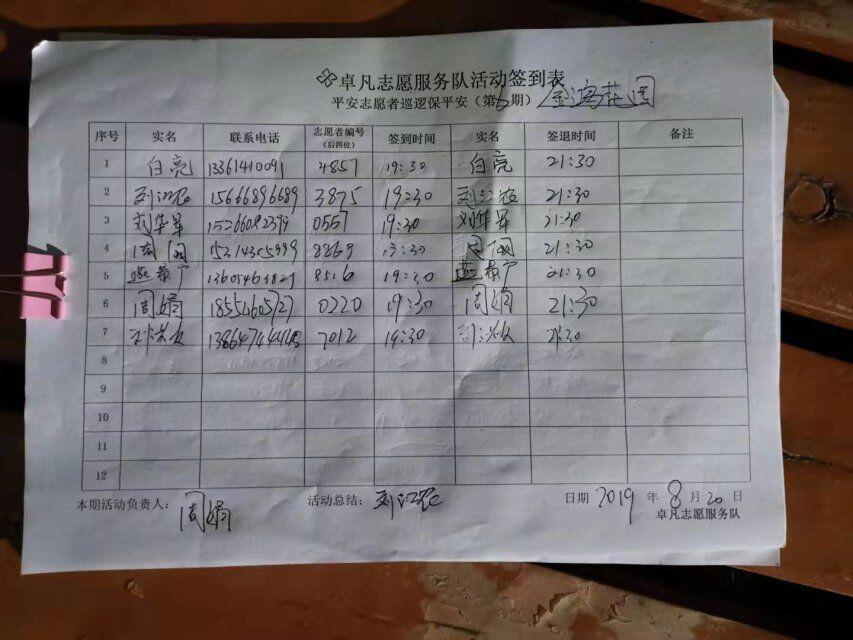 卓凡志愿服务队活动签到表
平安志愿者巡逻保平安（第6期） 金鸿花园
序号 实名 联系电话 志愿者编号（后四位） 签到时间 实名 签退时间 备注
1 白亮 13361410091 4857 19:30 白亮 21:30
2 刘江农 15666896689 3875 19:30 刘江农 21:30
3 刘华军 0557 19:30 刘华军 21:30
4 周网 15214305999 8869 19:30 周网 21:30
5 8516 19:30 21:30
6 周娟 0220 19:30 周娟 21:30
7 7012 19:30 21:30
8
9
10
11
12
本期活动负责人： 周娟 活动总结： 刘江农 日期 2019 年 8 月 20 日
卓凡志愿服务队